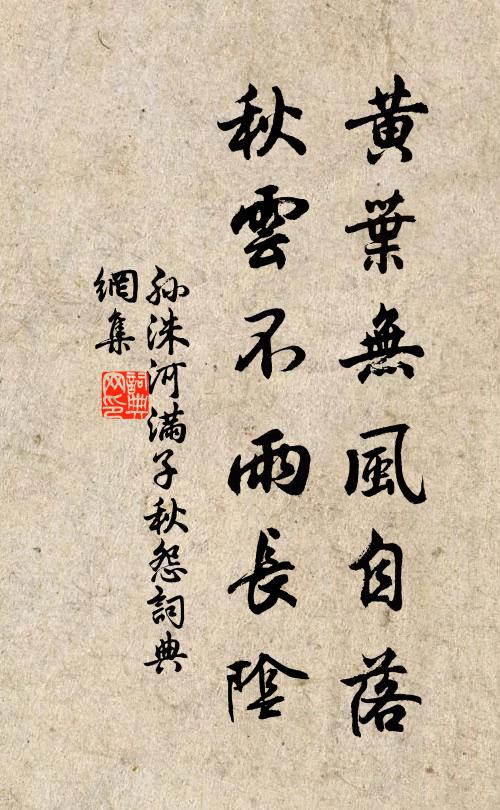 黄葉無風自落
秋雲不雨長陰
孫洙河滿子秋怨詞典
網集
詞典
网印